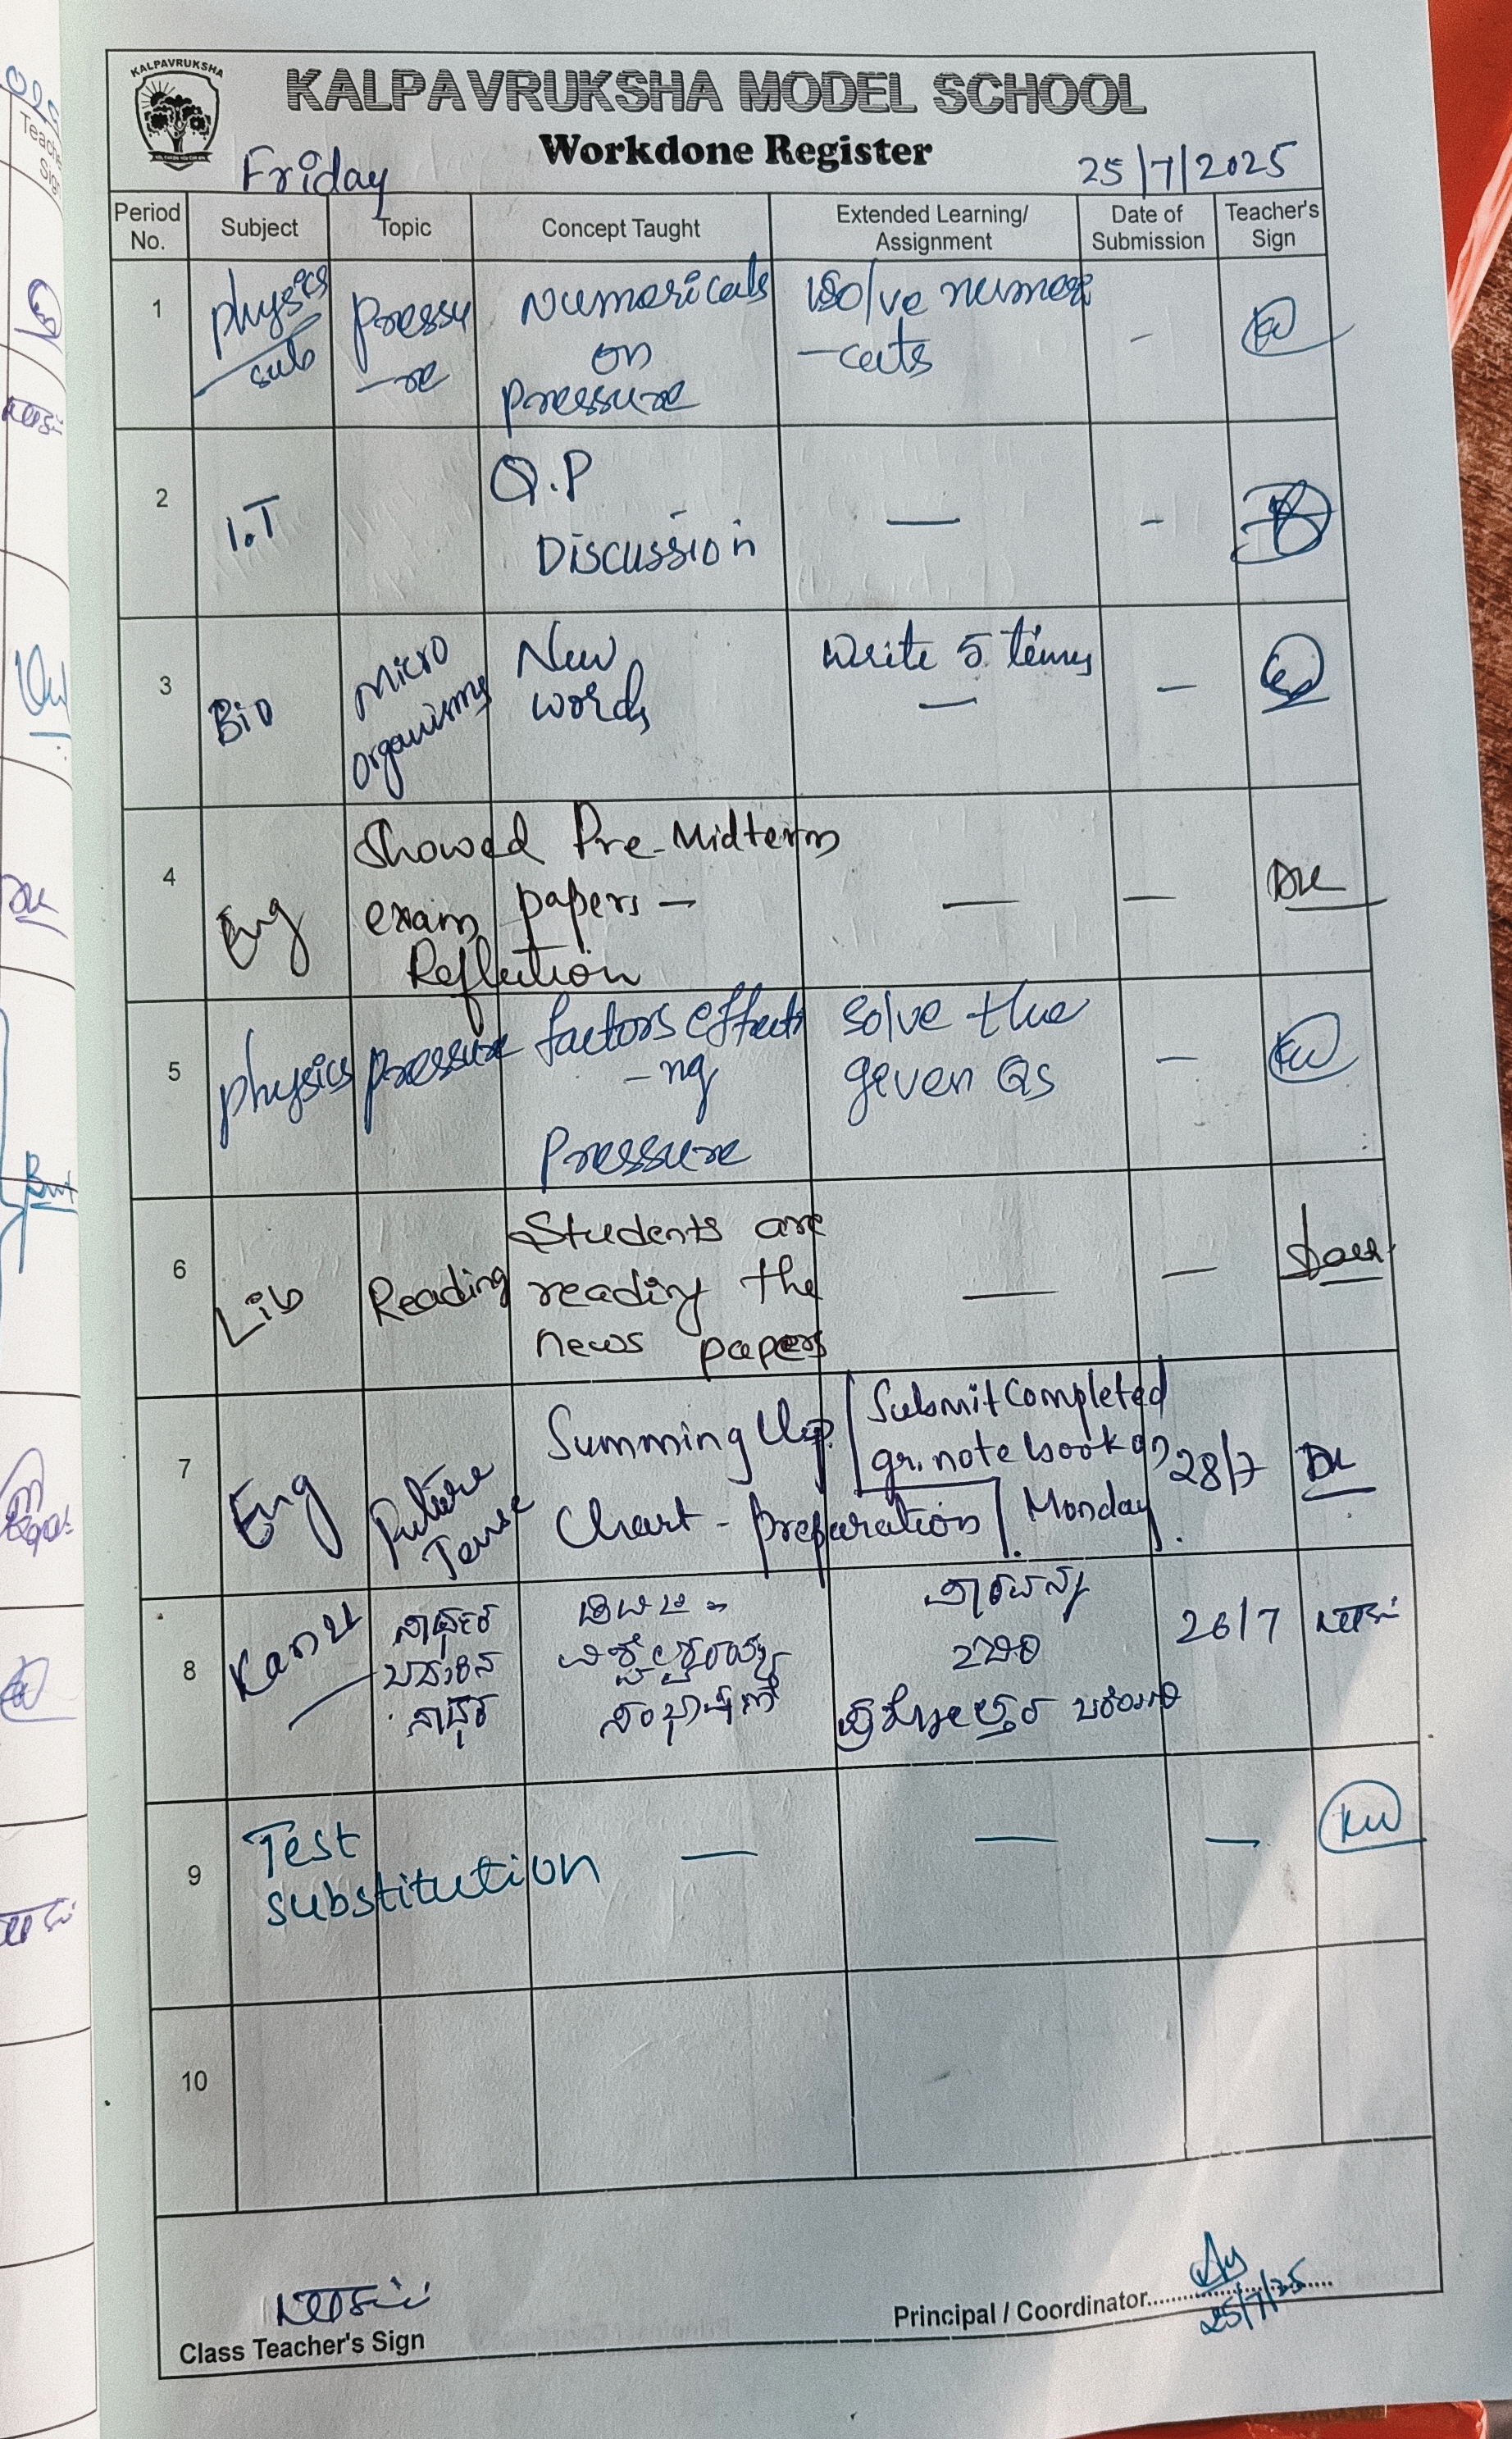 KALPAVRUKSHA
KALPAVRUKSHA MODEL SCHOOL
Workdone Register
Friday
25/7/2025
Period No. Subject Topic Concept Taught Extended Learning/ Assignment Date of Submission Teacher's Sign
1
physics
sub
Pressu
-re
Numericals
on
Pressure
Solve numeri
-cals
-
2
I.T
Q.P
Discussion
—
-
3
Bio
Micro
organisms
New
words
Write 5 times
—
—
4
Eng
Showed Pre-Midterm
exam papers —
Reflection
—
—
5
physics
Pressure
factors effecti
-ng
Pressure
Solve the
given Qs
—
6
Lib
Reading
Students are
reading the
news papers
—
—
7
Eng
Future
Tense
Summing Up
Chart - preparation
Submit Completed
gr. note book on
Monday.
28/7
8
Kann
26/7
9
Test
substitution
—
—
—
10
Class Teacher's Sign
Principal / Coordinator
25/7/25